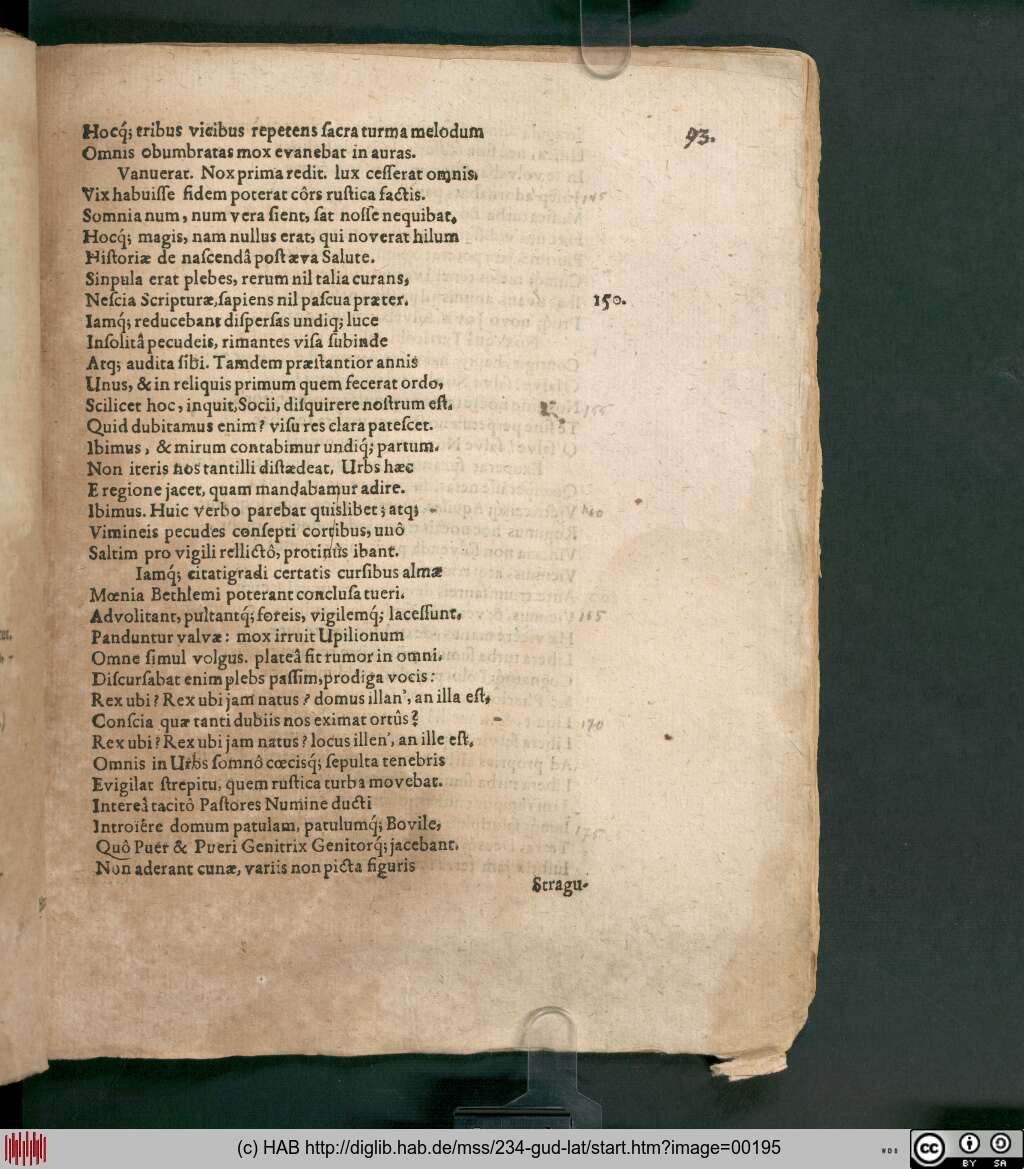 93.
Hocq́; tribus vicibus repetens ſacra turma melodum
Omnis obumbratas mox evanebat in auras.
Vanuerat. Nox prima redit. lux ceſſerat omnis,
Vix habuiſſe fidem poterat côrs ruſtica factis.
Somnia num, num vera ſient, ſat noſſe nequibat,
Hocq́; magis, nam nullus erat, qui noverat hilum
Hiſtoriæ de naſcendâ poſt æva Salute.
Sinpula erat plebes, rerum nil talia curans,
Neſcia Scripturæ, ſapiens nil paſcua præter.
150.
Iamq́; reducebant diſperſas undiq; luce
Inſolitâ pecudeis, rimantes viſa ſubinde
Atq; audita ſibi. Tamdem præſtantior annis
Unus, & in reliquis primum quem fecerat ordo,
Scilicet hoc, inquit, Socii, diſquirere noſtrum eſt.
155
Quid dubitamus enim? viſu res clara pateſcet.
Ibimus, & mirum contabimur undiq́; partum.
Non iteris nos tantilli diſtædeat, Urbs hæc
E regione jacet, quam mandabamur adire.
Ibimus. Huic verbo parebat quislibet; atq;
160
Vimineis pecudes conſepti cortibus, unô
Saltim pro vigili rellictô, protinùs ibant.
Iamq́; citatigradi certatis curſibus almæ
Mœnia Bethlemi poterant concluſa tueri.
Advolitant, pultantq́; foreis, vigilemq́; laceſſunt.
165
Panduntur valvæ: mox irruit Upilionum
Omne ſimul volgus. plateâ fit rumor in omni.
Diſcurſabat enim plebs paſſim, prodiga vocis:
Rex ubi? Rex ubi jam natus? domus illan', an illa eſt,
Conſcia quæ tanti dubiis nos eximat ortûs?
170
Rex ubi? Rex ubi jam natus? locus illen', an ille eſt,
Omnis in Urbs ſomnô cœcisq́; ſepulta tenebris
Evigilat ſtrepitu, quem ruſtica turba movebat.
Intereâ tacitô Paſtores Numine ducti
Introiêre domum patulam, patulumq́; Bovile,
175
Quô Puer & Pueri Genitrix Genitorq́; jacebant.
Non aderant cunæ, variis non picta figuris
Stragu-
(c) HAB http://diglib.hab.de/mss/234-gud-lat/start.htm?image=00195
cc BY SA